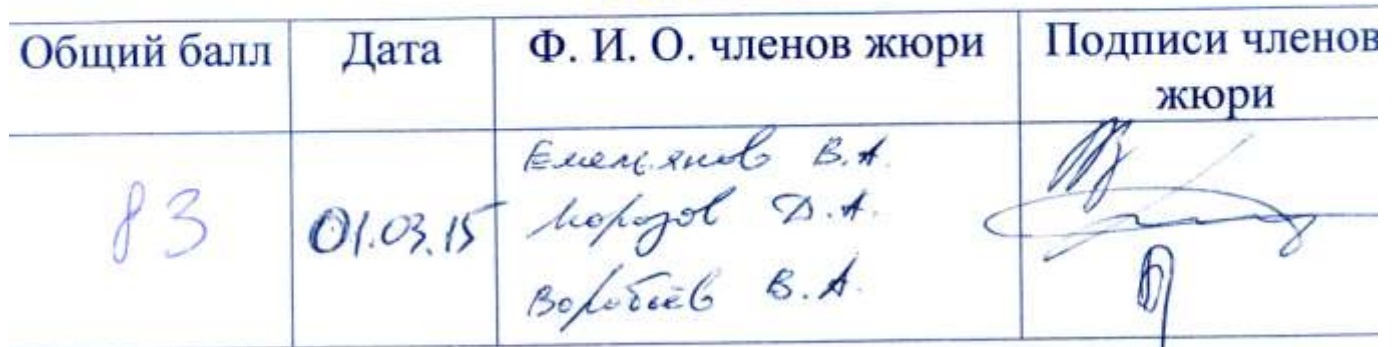 Общий балл Дата Ф. И. О. членов жюри Подписи членов жюри
83 01.03.15 Емельянов В.А.
Морозов Д.А.
Воробьёв В.А.